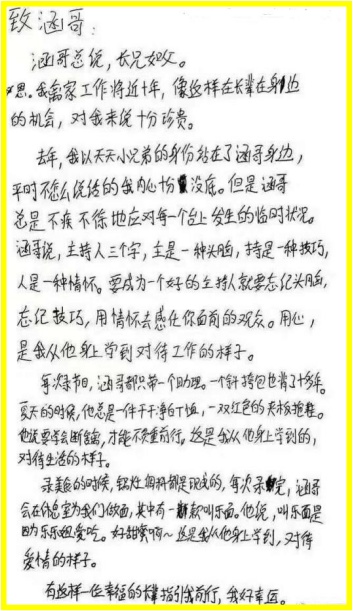 致涵哥：
涵哥总说，长兄如父。
思。我离家工作将近十年，像这样在长辈在身边
的机会，对我来说十分珍贵。
去年，我以天天小兄弟的身份站在了涵哥身边，
平时不怎么说话的我内心十分没底。但是涵哥
总是不疾不徐地应对每一个台上发生的临时状况。
涵哥说，主持人三个字，主是一种头脑，持是一种技巧，
人是一种情怀。要成为一个好的主持人就要忘记头脑，
忘记技巧，用情怀去感任你面前的观众。用心，
是我从他身上学到对待工作的样子。
每次录节目，涵哥都只带一个助理。一个斜挎包也背了十多年。
夏天的时候，他总是一件干干净白T恤，一双红色的夹板拖鞋。
他说要学会断舍离，才能不负重前行，这是我从他身上学到的，
对待生活的样子。
录美食的时候，锅灶、佰料都是现成的，每次录完，涵哥
会在休息室为我们做面，其中有一款叫乐面。他说，叫乐面是
因为乐乐姐爱吃。好甜蜜啊～这是我从他身上学到，对待
爱情的样子。
有这样一位幸福的榜样指引我前行，我好幸运。